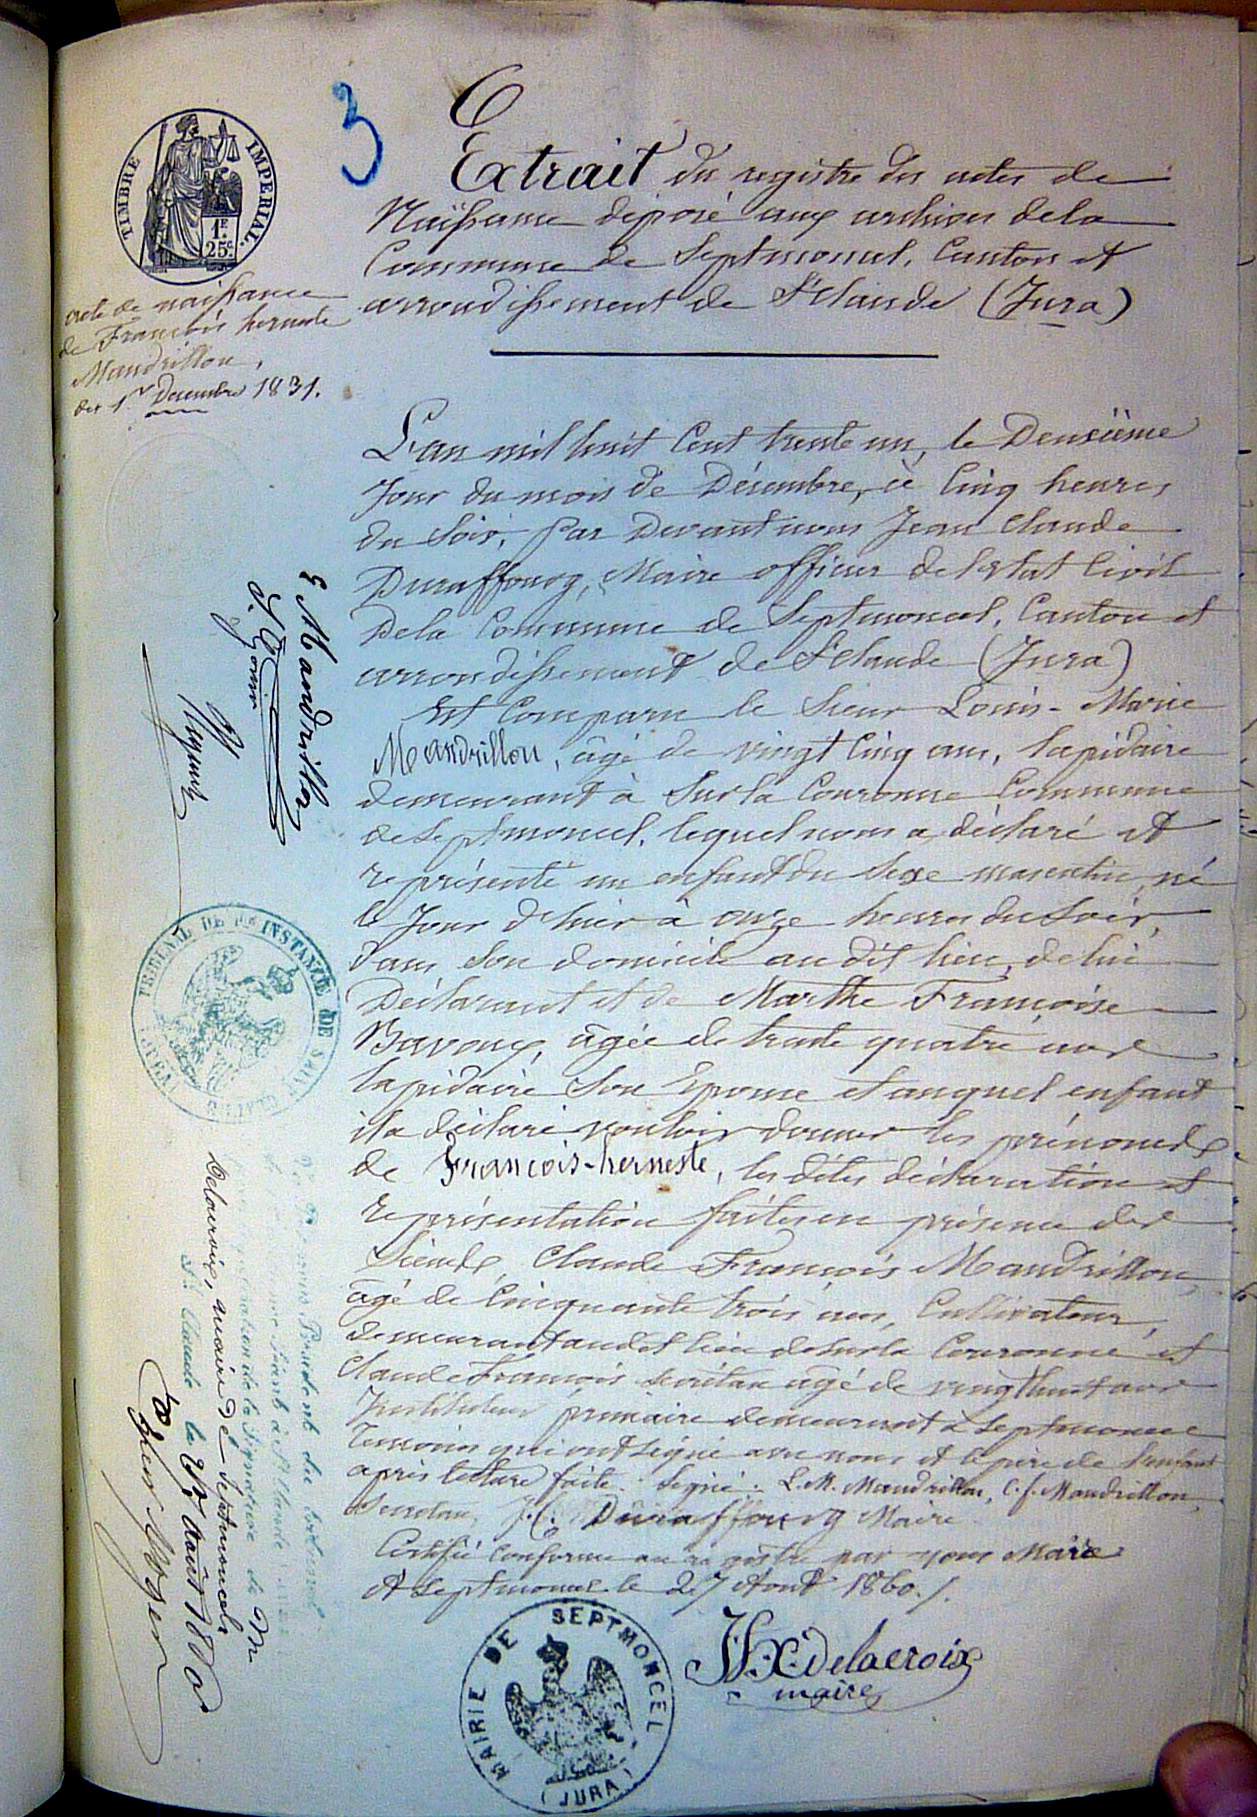 3
Extrait du registre des actes de
Naissance déposé aux archives de la
Commune de Septmoncel, Canton et
arrondissement de St Claude (Jura)
TIMBRE IMPERIAL.
1F.
25c
acte de naissance
de François herneste
Mandrillon,
du 1er Decembre 1831.
L'an mil huit Cent trente un, le Deuxième
Jour du mois de Décembre, à Cinq heures
du Soir, Par Devant nous Jean Claude
Duraffourg, Maire officier de l'état Civil
De la Commune de Septmoncel, Canton et
arrondissement de St Claude (Jura)
Est Comparu le Sieur Louis-Marie
Mandrillon, âgé de vingt Cinq ans, lapidaire
demeurant à Sur la Couronne Commune
de Septmoncel, lequel nous a déclaré et
représenté un enfant du Sexe masculin, né
le Jour d'hier à onze heures du Soir,
dans Son domicile au dit lieu, de lui
Déclarant et de Marthe Françoise
Bavoux, âgée de trente quatre ans
lapidaire Son Epouse et auquel enfant
il a déclaré vouloir donner les prénoms
de François-herneste, les dites déclaration et
représentation faites en présence des
Sieurs, Claude François Mandrillon,
âgé de Cinquante trois ans, Cultivateur,
demeurant audit lieu de Sur la Couronne et
Claude François Secrétan âgé de vingt huit ans
Instituteur primaire demeurant à Septmoncel
Témoins qui ont Signé avec nous et le père de l'enfant
après lecture faite. Signé: L. M. Mandrillon, C. f. Mandrillon,
Secretan, J. C. Duraffourg Maire
Certifié Conforme au registre par nous Maire
A Septmoncel le 27 Août 1860 ./.
E Mandrillon
TRIBUNAL DE 1RE INSTANCE DE SAINT CLAUDE (JURA)
Vu par nous Président du tribunal
légalisation de la Signature de Mr
Delacroix, maire de Septmoncel
St Claude le août 1860
MAIRIE DE SEPTMONCEL
(JURA)
J. X. Delacroix
maire